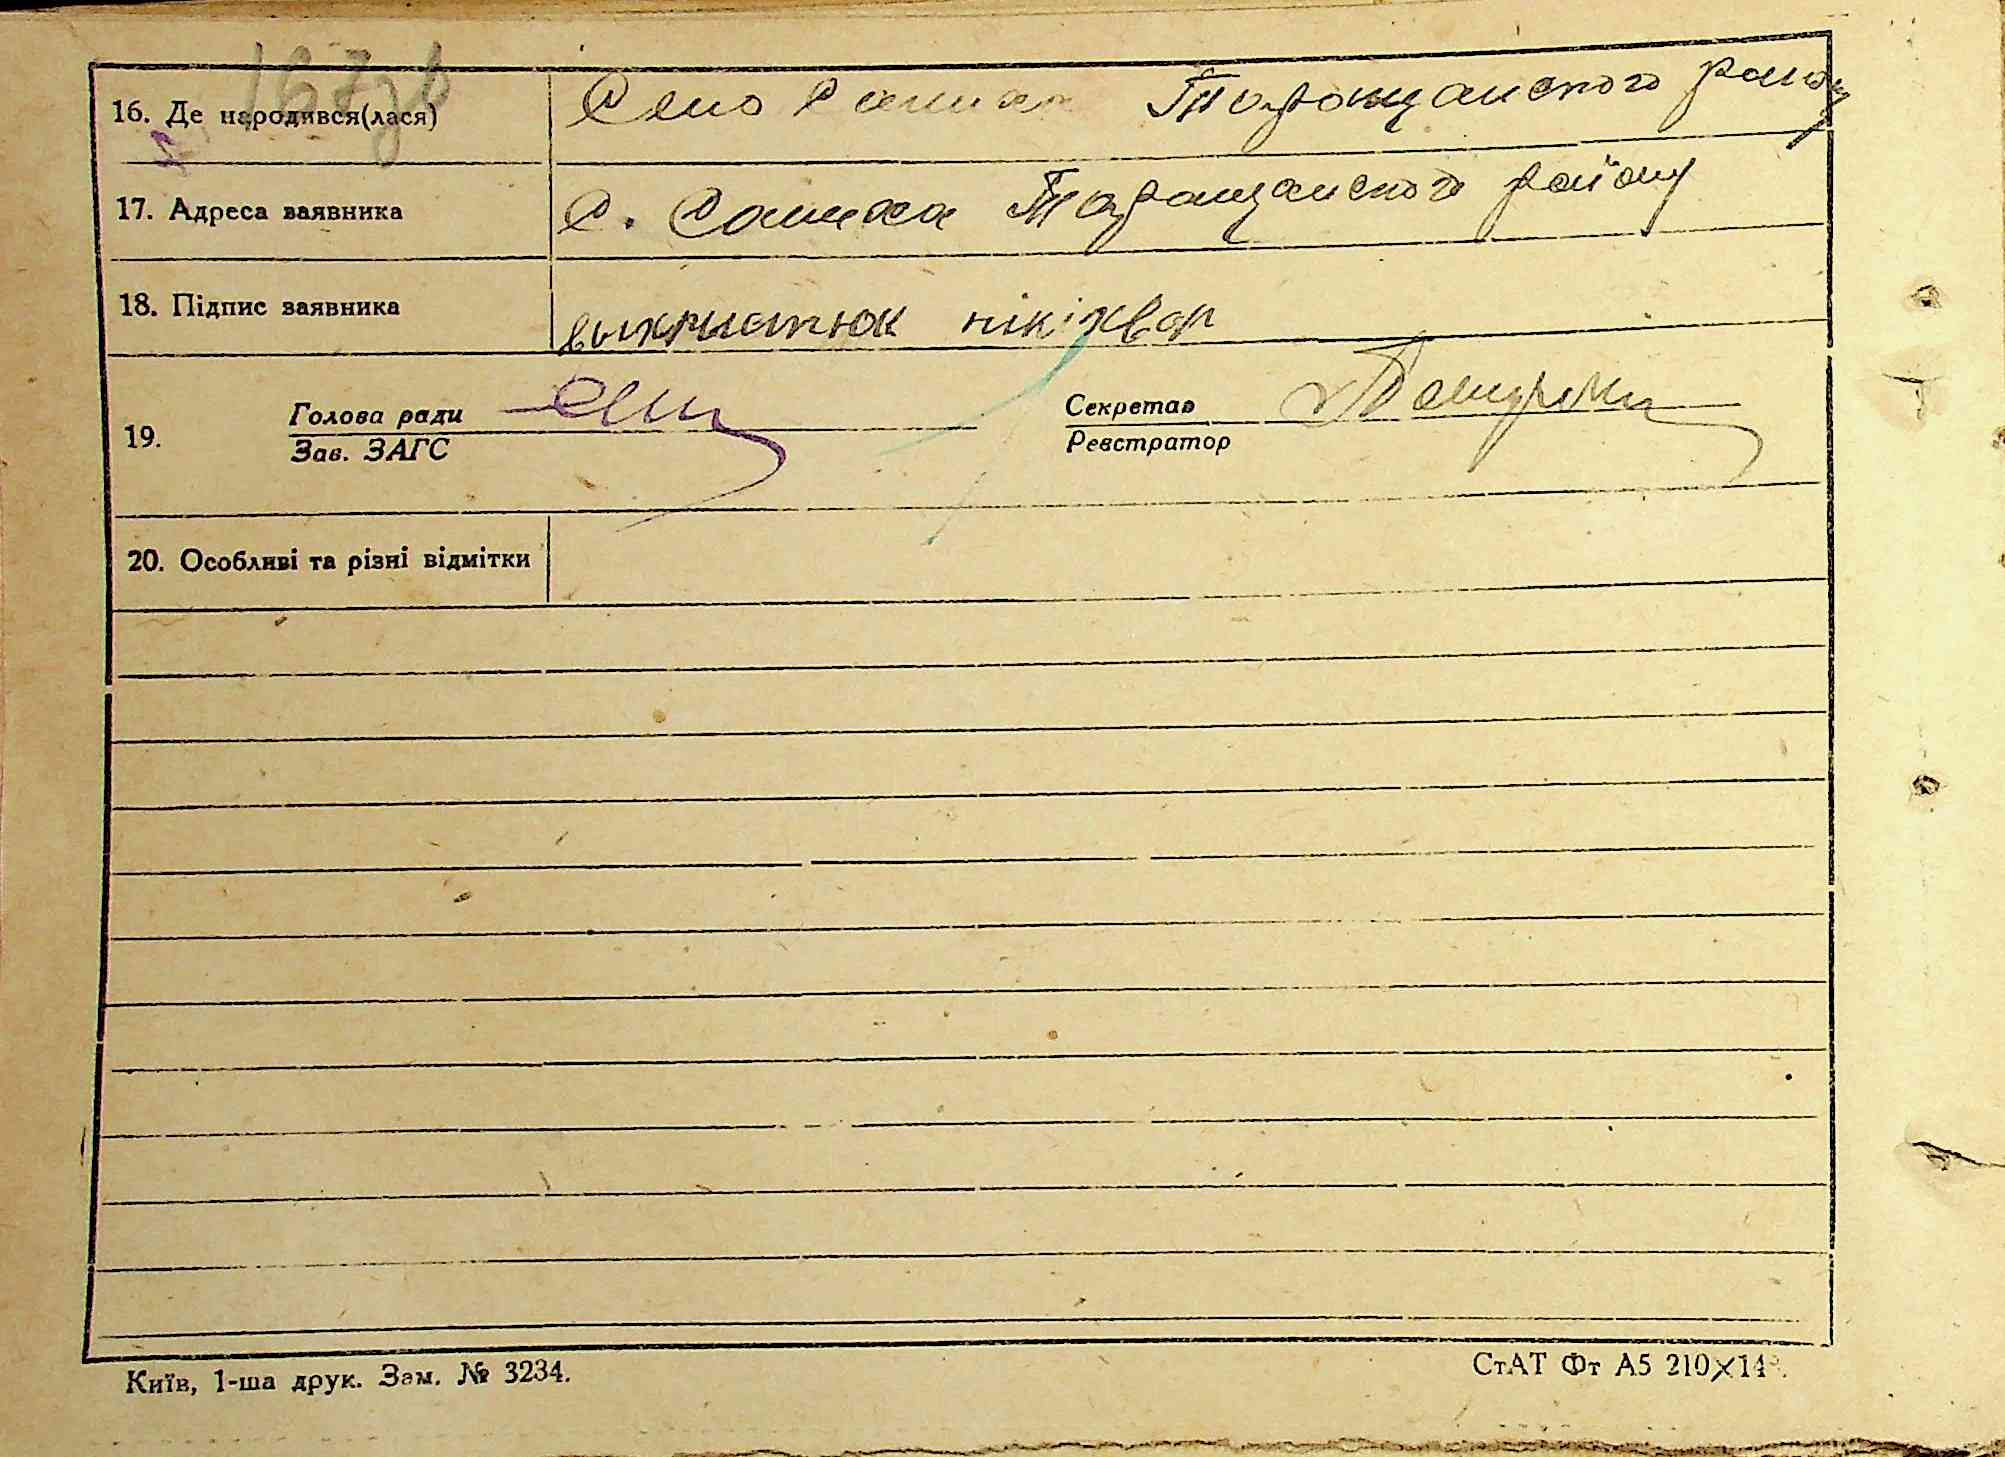 167зв
16. Де народився(лася) Село Саниха Таращанського району
17. Адреса заявника с. Саниха Таращанського району
18. Підпис заявника выхристюк нікіхвор
19. Голова ради
Зав. ЗАГС
Секретар
Реєстратор
20. Особливі та різні відмітки
Київ, 1-ша друк. Зам. № 3234.
СтАТ Фт А5 210×14